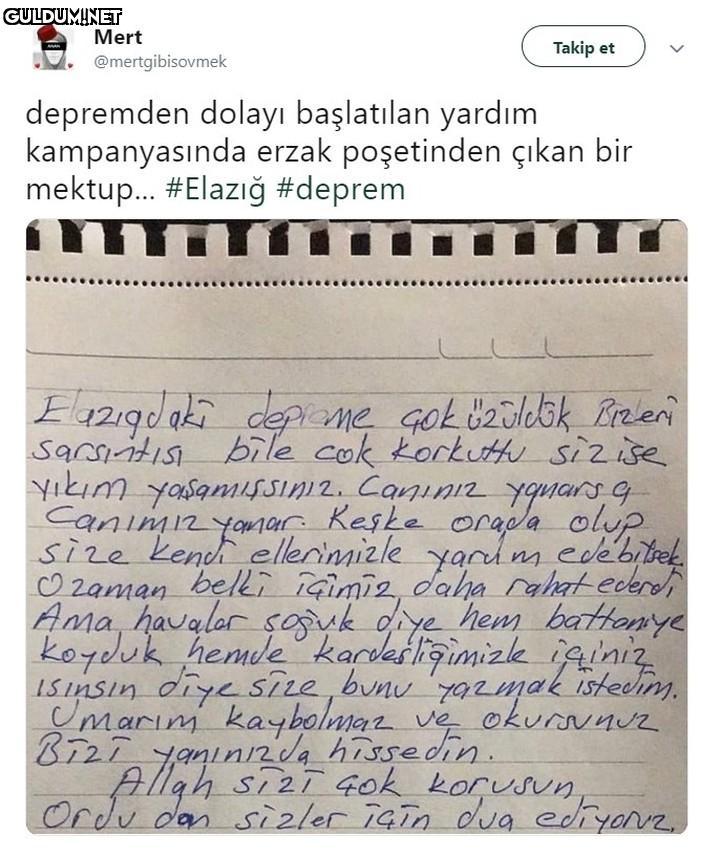 GULDUM.NET
Mert
@mertgibisovmek
Takip et
depremden dolayı başlatılan yardım
kampanyasında erzak poşetinden çıkan bir
mektup... #Elazığ #deprem
Elazıgdaki depreme çok üzüldük Bizleri
sarsıntısı bile cok korkuttu siz ise
yıkım yaşamıssınız. Canınız yanarsa
Canımız yanar. Keşke orada olup
size kendi ellerimizle yardım edebilsek.
O zaman belki içimiz daha rahat ederdi
Ama havalar soğuk diye hem battaniye
koyduk hemde kardeşliğimizle içiniz
ısınsın diye size bunu yazmak istedim.
Umarım kaybolmaz ve okursunuz
Bizi yanınızda hissedin.
Allah sizi çok korusun
Ordu dan sizler için dua ediyoruz.